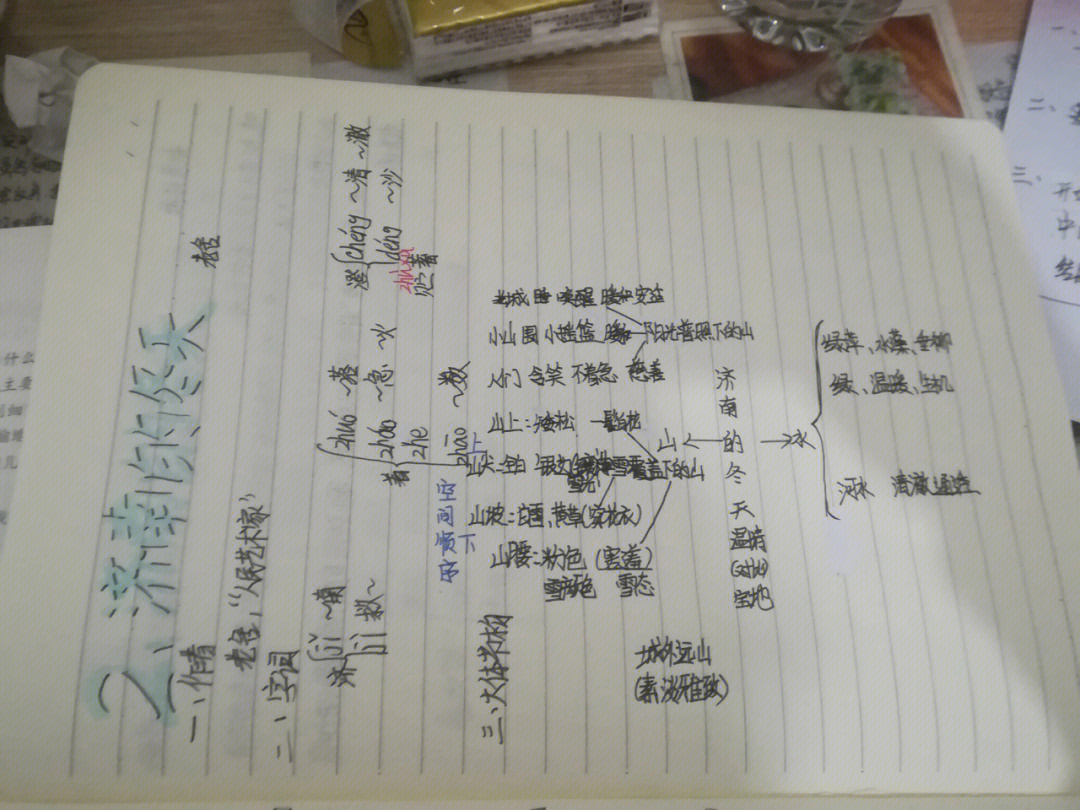 2、济南的冬天
老舍
一、作者
老舍,“人民艺术家”
二、字词
济 jǐ ~南
jì 救~
着 zhuó ~落
zháo ~急 ~火
zhe
zhāo ~数
澄 chéng ~清 ~澈
dèng ~沙
zhù xù
贮蓄
三、大体结构
空间顺序
上
下
城 睡 唤醒 暖和安适
小山 围 小摇篮
阳光普照下的山
人们 含笑 不着急 慈善
山上:矮松 一髻白花
山尖:全白 银边
雪覆盖下的山
山坡:白雪、黄草(穿花衣)
山腰:粉色 (害羞)
雪色 雪态
城外远山
(素淡雅致)
山
济南的冬天
温晴
(对比)
宝地
水
绿萍、水藻、垂柳
绿、温暖、生机
河水 清澈透连